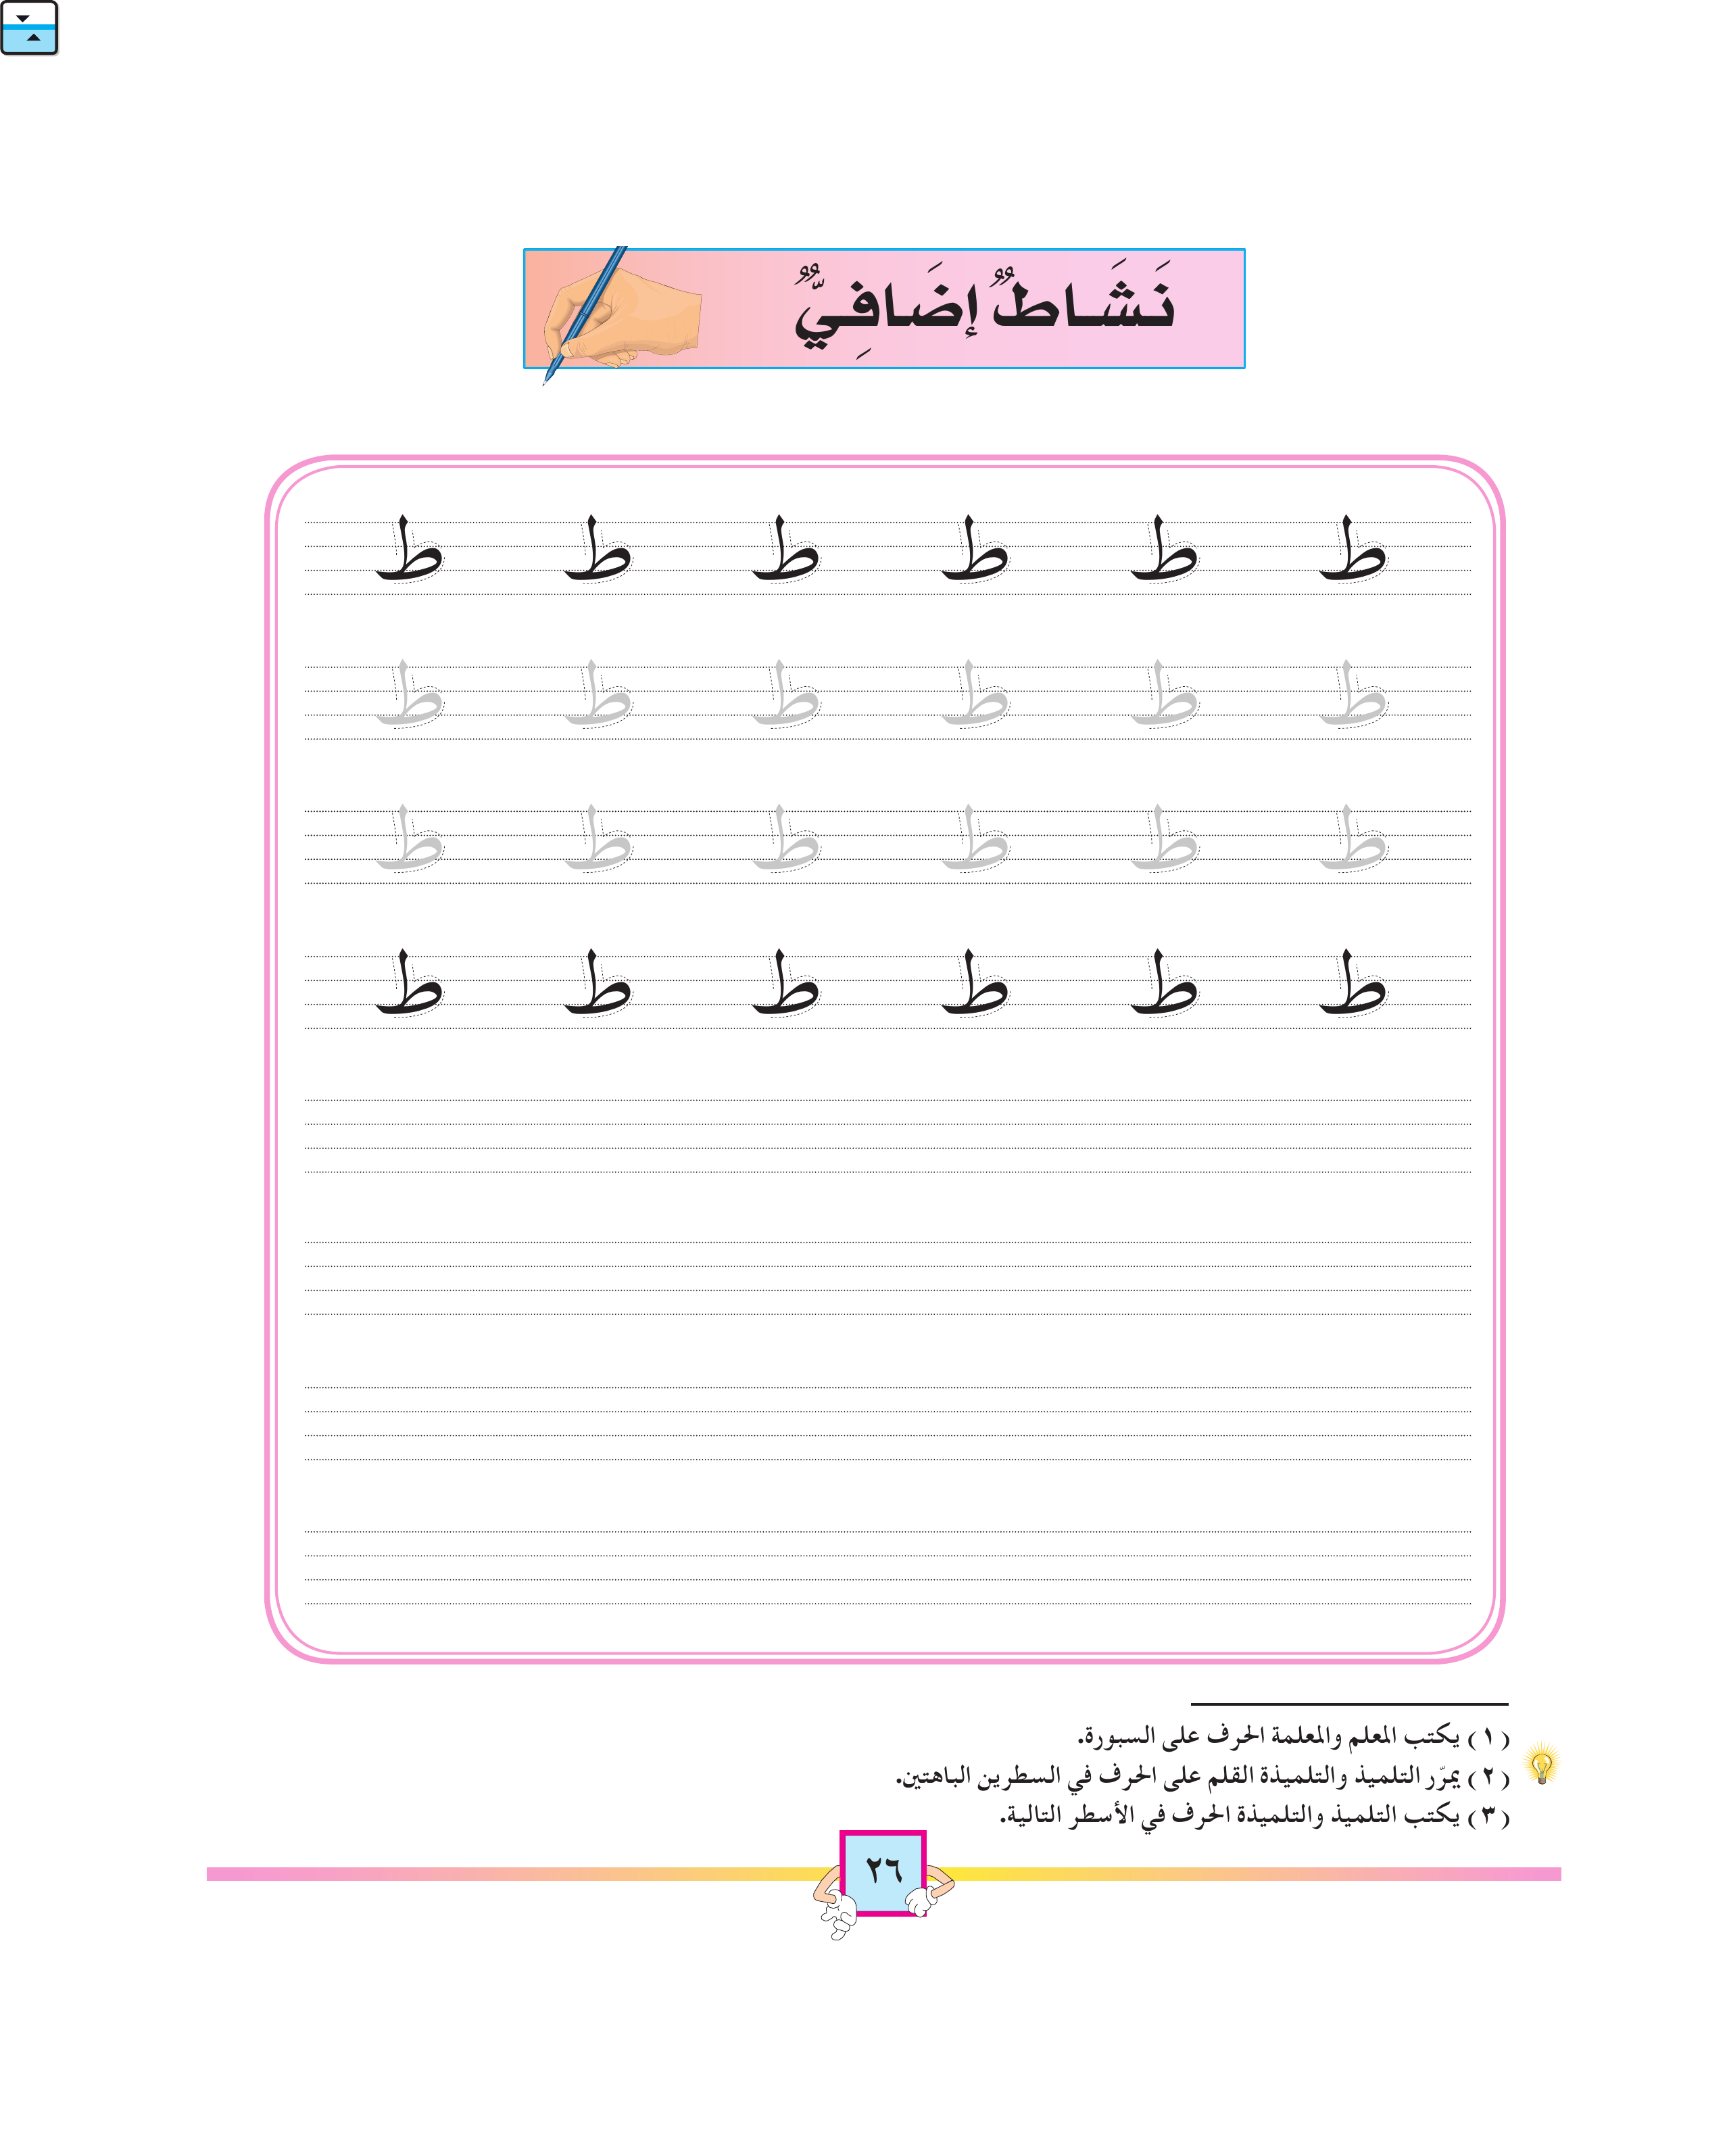 نَشَاطٌ إضَافِيٌّ
ط ط ط ط ط ط
ط ط ط ط ط ط
ط ط ط ط ط ط
ط ط ط ط ط ط
(١) يكتب المعلم والمعلمة الحرف على السبورة.
(٢) يمرّر التلميذ والتلميذة القلم على الحرف في السطرين الباهتين.
(٣) يكتب التلميذ والتلميذة الحرف في الأسطر التالية.
٢٦